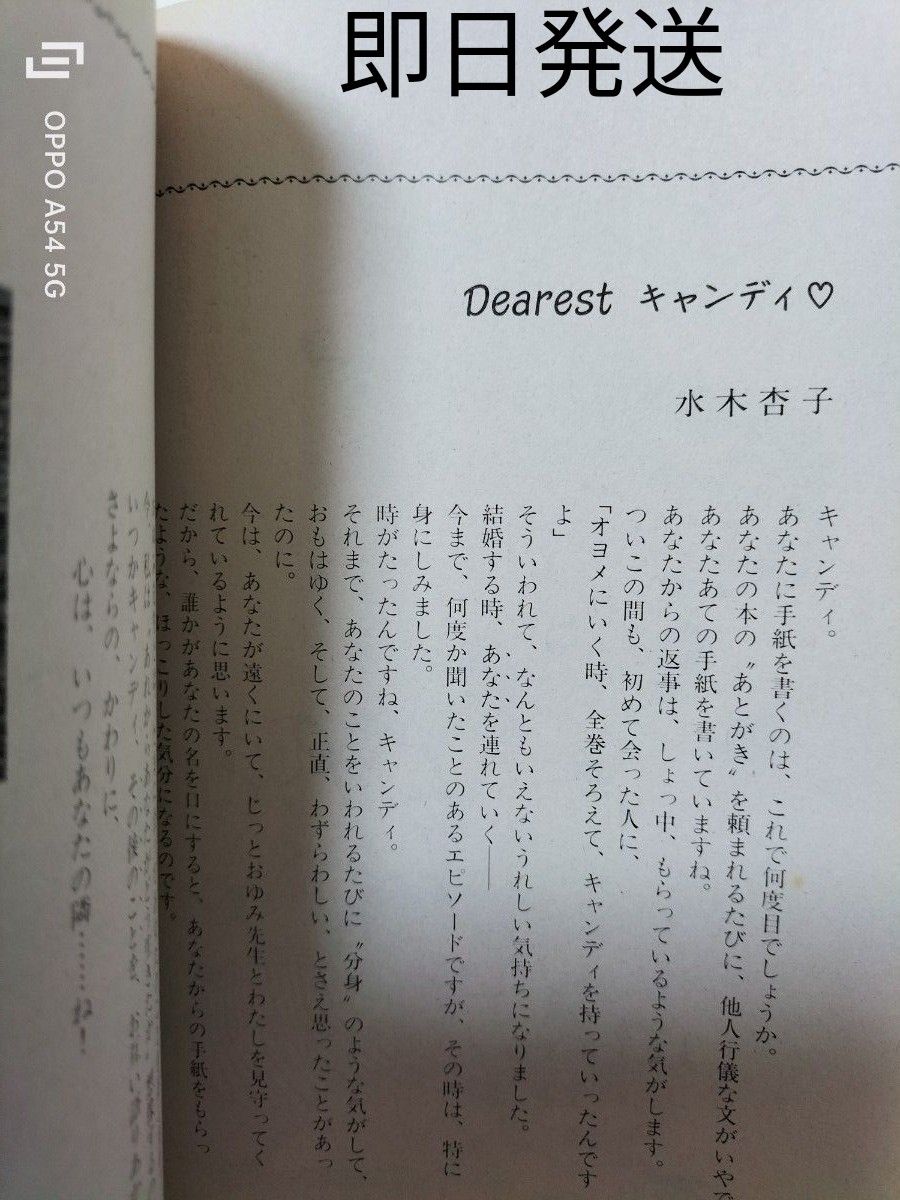 即日発送
OPPO A54 5G
Dearest キャンディ♡
水木杏子
キャンディ。
あなたに手紙を書くのは、これで何度目でしょうか。
あなたの本の〝あとがき〟を頼まれるたびに、他人行儀な文がいやで
あなたあての手紙を書いていますね。
あなたからの返事は、しょっ中、もらっているような気がします。
ついこの間も、初めて会った人に、
「オヨメにいく時、全巻そろえて、キャンディを持っていったんです
よ」
そういわれて、なんともいえないうれしい気持ちになりました。
結婚する時、あなたを連れていく——
今まで、何度か聞いたことのあるエピソードですが、その時は、特に
身にしみました。
時がたったんですね、キャンディ。
それまで、あなたのことをいわれるたびに〝分身〟のような気がして、
おもはゆく、そして、正直、わずらわしい、とさえ思ったことがあっ
たのに。
今は、あなたが遠くにいて、じっとおゆみ先生とわたしを見守ってく
れているように思います。
だから、誰かがあなたの名を口にすると、あなたからの手紙をもらっ
たような、ほっこりした気分になるのです。
いつかキャンディ、その後の
さよならの、かわりに、
心は、いつもあなたの隣……ね!